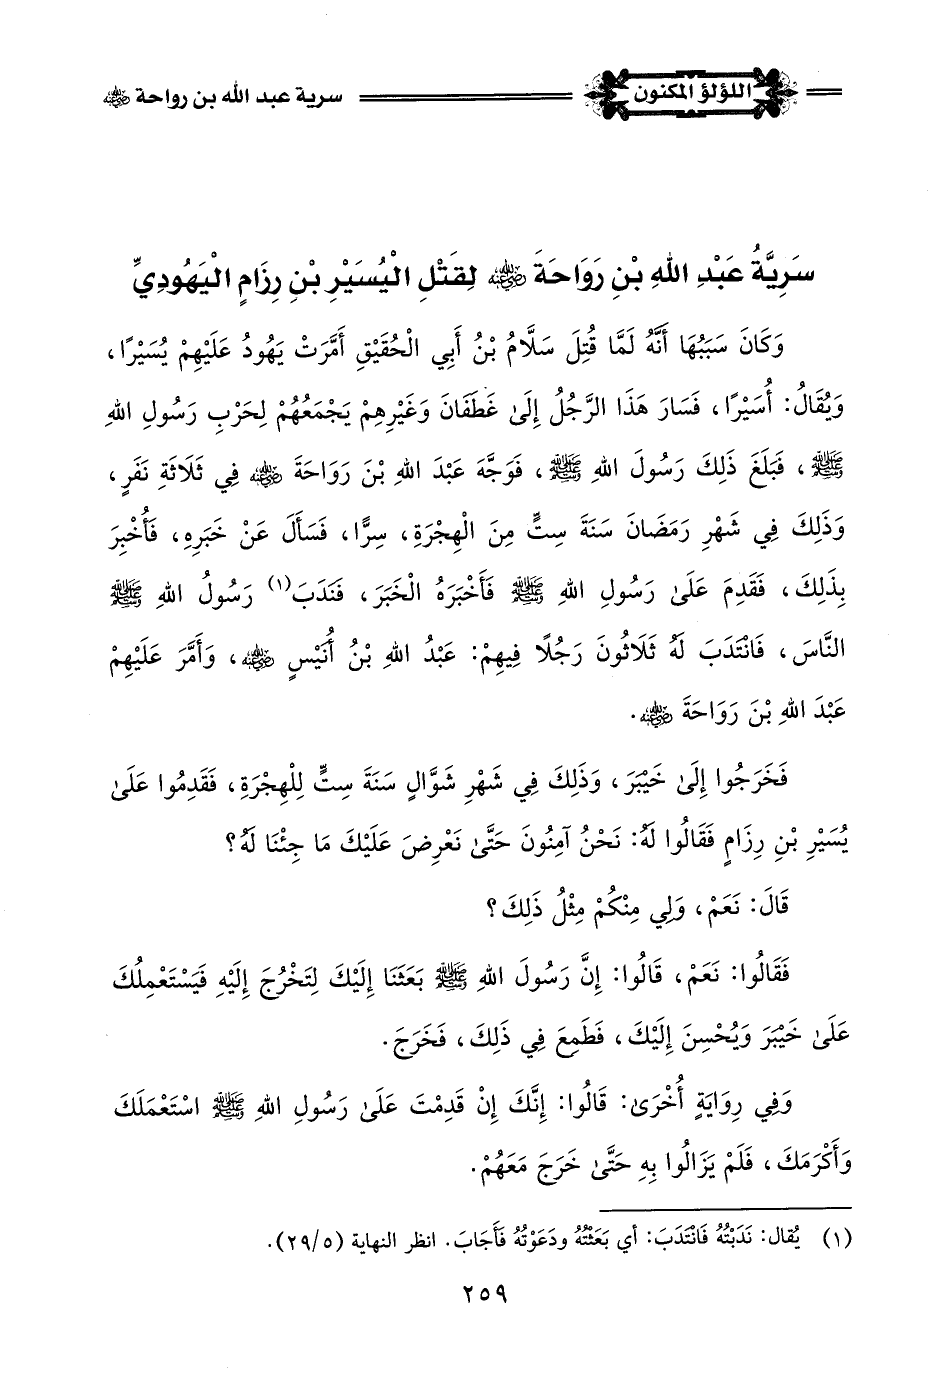 اللؤلؤ المكنون
سرية عبد الله بن رواحة رضي الله عنه
سَرِيَّةُ عَبْدِ اللهِ بْنِ رَوَاحَةَ رضي الله عنه لِقَتْلِ الْيُسَيْرِ بْنِ رِزَامٍ الْيَهُودِيِّ
وَكَانَ سَبَبُهَا أَنَّهُ لَمَّا قُتِلَ سَلَّامُ بْنُ أَبِي الْحُقَيْقِ أَمَّرَتْ يَهُودُ عَلَيْهِمْ يُسَيْرًا،
وَيُقَالُ: أُسَيْرًا، فَسَارَ هَذَا الرَّجُلُ إِلَىٰ غَطَفَانَ وَغَيْرِهِمْ يَجْمَعُهُمْ لِحَرْبِ رَسُولِ اللهِ
ﷺ، فَبَلَغَ ذَلِكَ رَسُولَ اللهِ ﷺ، فَوَجَّهَ عَبْدَ اللهِ بْنَ رَوَاحَةَ رضي الله عنه فِي ثَلَاثَةِ نَفَرٍ،
وَذَلِكَ فِي شَهْرِ رَمَضَانَ سَنَةَ سِتٍّ مِنَ الْهِجْرَةِ، سِرًّا، فَسَأَلَ عَنْ خَبَرِهِ، فَأُخْبِرَ
بِذَلِكَ، فَقَدِمَ عَلَىٰ رَسُولِ اللهِ ﷺ فَأَخْبَرَهُ الْخَبَرَ، فَنَدَبَ(١) رَسُولُ اللهِ ﷺ
النَّاسَ، فَانْتَدَبَ لَهُ ثَلَاثُونَ رَجُلًا فِيهِمْ: عَبْدُ اللهِ بْنُ أُنَيْسٍ رضي الله عنه، وَأَمَّرَ عَلَيْهِمْ
عَبْدَ اللهِ بْنَ رَوَاحَةَ رضي الله عنه.
فَخَرَجُوا إِلَىٰ خَيْبَرَ، وَذَلِكَ فِي شَهْرِ شَوَّالٍ سَنَةَ سِتٍّ لِلْهِجْرَةِ، فَقَدِمُوا عَلَىٰ
يُسَيْرِ بْنِ رِزَامٍ فَقَالُوا لَهُ: نَحْنُ آمِنُونَ حَتَّىٰ نَعْرِضَ عَلَيْكَ مَا جِئْنَا لَهُ؟
قَالَ: نَعَمْ، وَلِي مِنْكُمْ مِثْلُ ذَلِكَ؟
فَقَالُوا: نَعَمْ، قَالُوا: إِنَّ رَسُولَ اللهِ ﷺ بَعَثَنَا إِلَيْكَ لِتَخْرُجَ إِلَيْهِ فَيَسْتَعْمِلُكَ
عَلَىٰ خَيْبَرَ وَيُحْسِنَ إِلَيْكَ، فَطَمِعَ فِي ذَلِكَ، فَخَرَجَ.
وَفِي رِوَايَةٍ أُخْرَىٰ: قَالُوا: إِنَّكَ إِنْ قَدِمْتَ عَلَىٰ رَسُولِ اللهِ ﷺ اسْتَعْمَلَكَ
وَأَكْرَمَكَ، فَلَمْ يَزَالُوا بِهِ حَتَّىٰ خَرَجَ مَعَهُمْ.
(١) يُقال: نَدَبْتُهُ فَانْتَدَبَ: أي بَعَثْتُهُ ودَعَوْتُهُ فَأَجَابَ. انظر النهاية (٢٩/٥).
٢٥٩